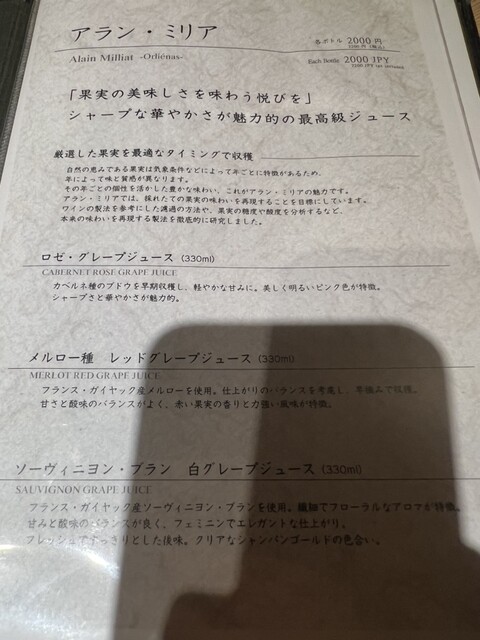 アラン・ミリア
各ボトル 2000 円
2200 円（税込）
Alain Milliat -Orlienas-
Each Bottle 2000 JPY
2200 JPY tax included
「果実の美味しさを味わう悦びを」
シャープな華やかさが魅力的の最高級ジュース
厳選した果実を最適なタイミングで収穫
自然の恵みである果実は気象条件などによって年ごとに特徴があるため、
年によって味と質感が異なります。
その年ごとの個性を活かした豊かな味わい、これがアラン・ミリアの魅力です。
アラン・ミリアでは、採れたての果実の味わいを再現することを目標にしています。
ワインの製法を参考にした濾過の方法や、果実の糖度や酸度を分析するなど、
本来の味わいを再現する製法を徹底的に研究しました。
ロゼ・グレープジュース（330ml）
CABERNET ROSE GRAPE JUICE
カベルネ種のブドウを早期収穫し、軽やかな甘みに。美しく明るいピンク色が特徴。
シャープさと華やかさが魅力的。
メルロー種 レッドグレープジュース（330ml）
MERLOT RED GRAPE JUICE
フランス・ガイヤック産メルローを使用。仕上がりのバランスを考慮し、早摘みで収穫。
甘さと酸味のバランスがよく、赤い果実の香りと力強い風味が特徴。
ソーヴィニヨン・ブラン 白グレープジュース（330ml）
SAUVIGNON GRAPE JUICE
フランス・ガイヤック産ソーヴィニヨン・ブランを使用。繊細でフローラルなアロマが特徴。
甘みと酸味のバランスが良く、フェミニンでエレガントな仕上がり。
フレッシュですっきりとした後味。クリアなシャンパンゴールドの色合い。